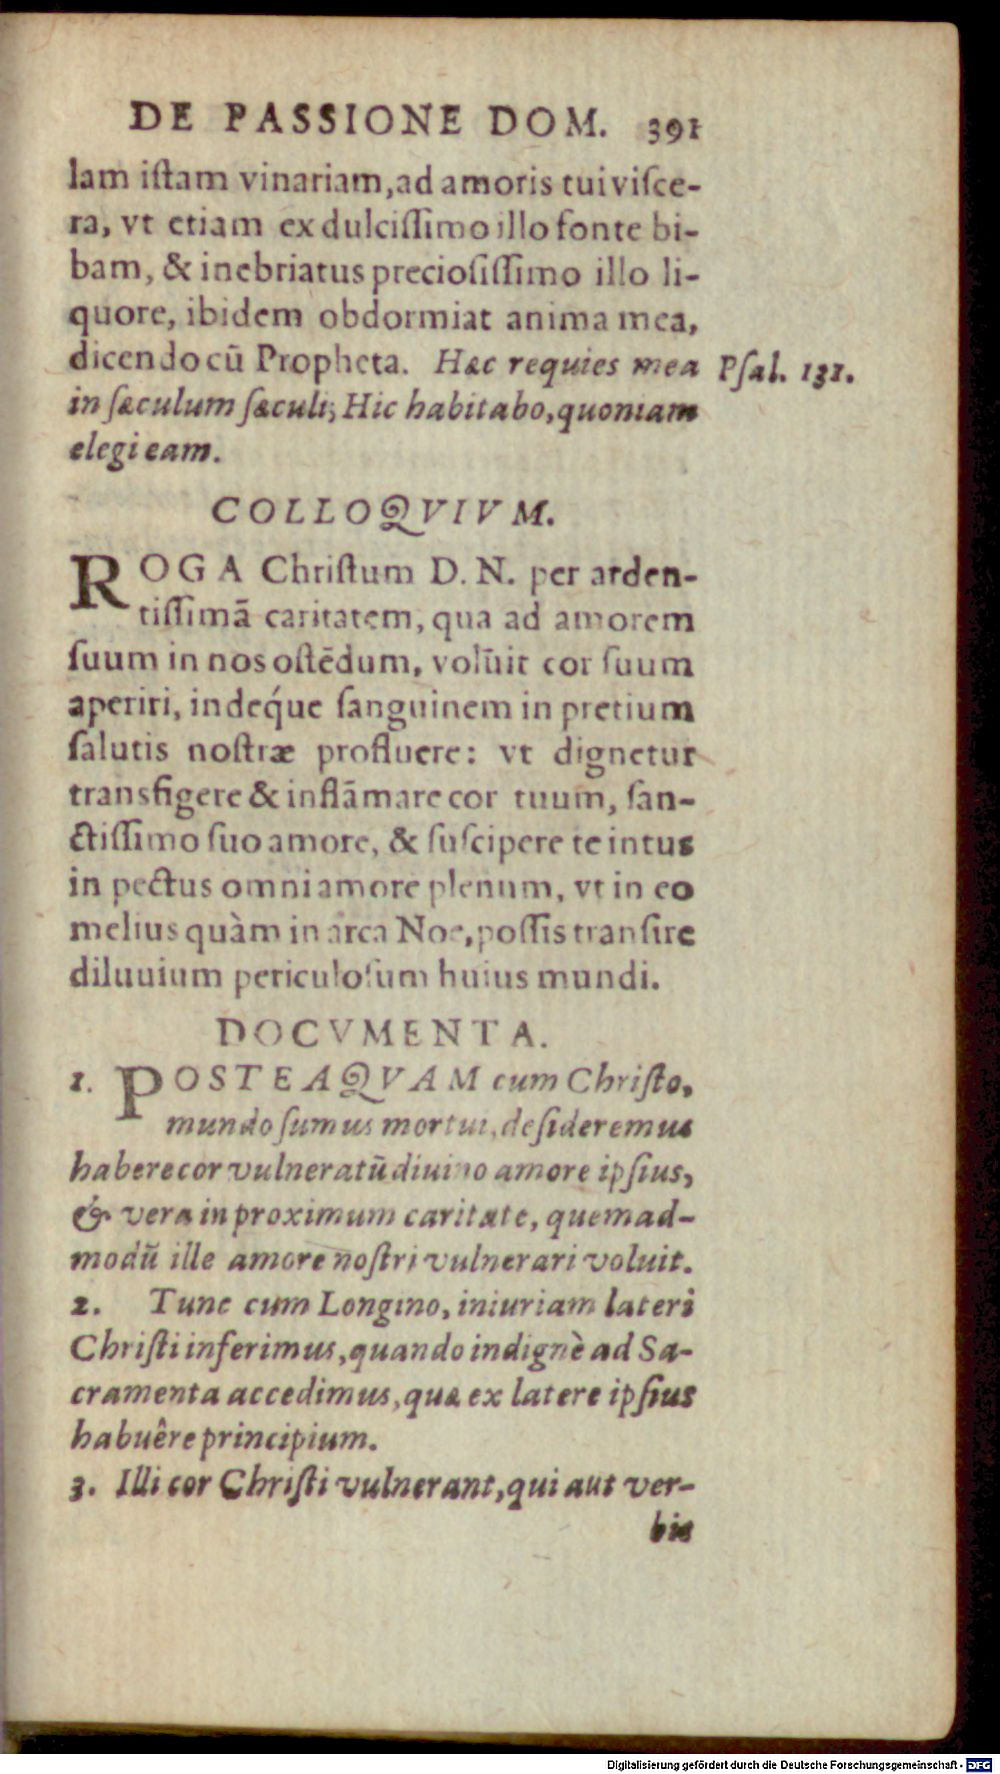 DE PASSIONE DOM. 391
lam iſtam vinariam, ad amoris tui viſce-
ra, vt etiam ex dulciſſimo illo fonte bi-
bam, & inebriatus precioſiſſimo illo li-
quore, ibidem obdormiat anima mea,
dicendo cū Propheta. Hæc requies mea
Pſal. 131.
in ſæculum ſæculi; Hic habitabo, quoniam
elegi eam.
COLLOQVIVM.
ROGA Chriſtum D. N. per arden-
tiſſimā caritatem, qua ad amorem
ſuum in nos oſtēdum, voluit cor ſuum
aperiri, indeq́ue ſanguinem in pretium
ſalutis noſtræ profluere: vt dignetur
transfigere & inflāmare cor tuum, ſan-
ctiſſimo ſuo amore, & ſuſcipere te intus
in pectus omni amore plenum, vt in eo
melius quàm in arca Noe, poſſis tranſire
diluuium periculoſum huius mundi.
DOCVMENTA.
1. POSTEAQVAM cum Chriſto,
mundo ſumus mortui, deſideremus
habere cor vulneratū diuino amore ipſius,
& vera in proximum caritate, quemad-
modū ille amore noſtri vulnerari voluit.
2. Tunc cum Longino, iniuriam lateri
Chriſti inferimus, quando indignè ad Sa-
cramenta accedimus, quæ ex latere ipſius
habuêre principium.
3. Illi cor Chriſti vulnerant, qui aut ver-
bis
Digitalisierung gefördert durch die Deutsche Forschungsgemeinschaft - DFG